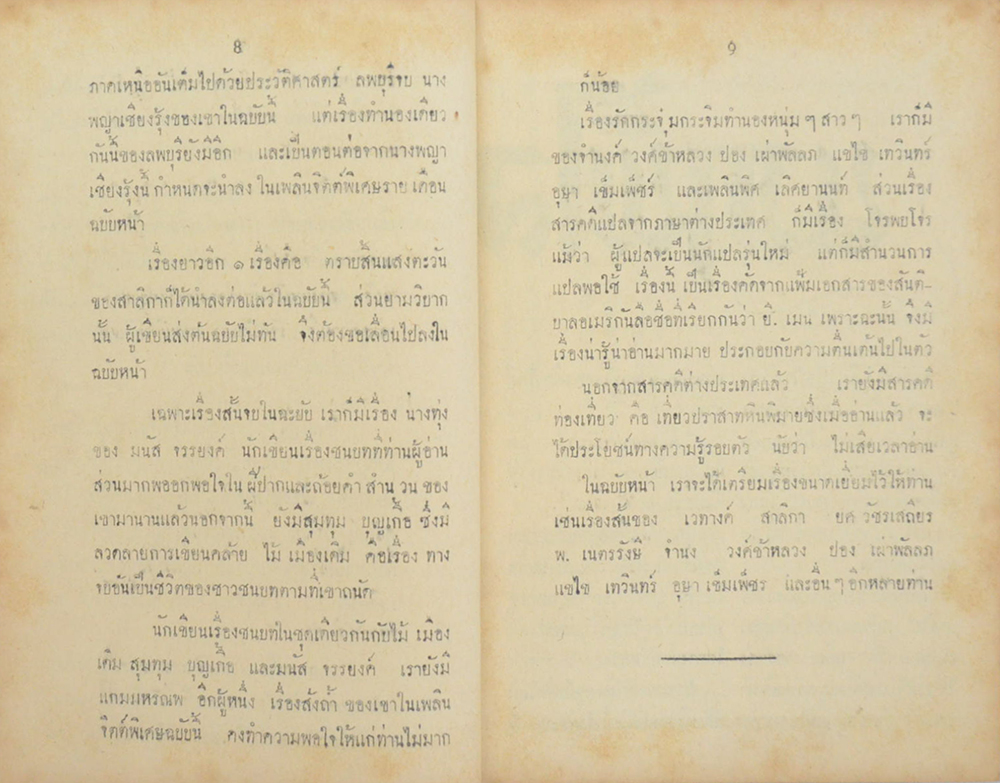 8
ภาคเหนืออันเต็มไปด้วยประวัติศาสตร์ ลพบุรีจบ นาง
พญาเชียงรุ้งของเขาในฉบับนี้ แต่เรื่องทำนองเดียว
กันนี้ของลพบุรียังมีอีก และเป็นตอนต่อจากนางพญา
เชียงรุ้งนี้ กำหนดจะนำลง ในเพลินจิตต์พิเศษราย เดือน
ฉบับหน้า
เรื่องยาวอีก ๑ เรื่องคือ ตราบสิ้นแสงตะวัน
ของสาลิกาก็ได้นำลงต่อแล้วในฉบับนี้ ส่วนยามวิบาก
นั้น ผู้เขียนส่งต้นฉบับไม่ทัน จึงต้องขอเลื่อนไปลงใน
ฉบับหน้า
เฉพาะเรื่องสั้นจบในฉะบับ เราก็มีเรื่อง นางทุ่ง
ของ มนัส จรรยงค์ นักเขียนเรื่องชนบทที่ท่านผู้อ่าน
ส่วนมากพออกพอใจใน ฝีปากและถ้อยคำ สำน วน ของ
เขามานานแล้วนอกจากนี้ ยังมีสุมทุม บุญเกื้อ ซึ่งมี
ลวดลายการเขียนคล้าย ไม้ เมืองเดิม คือเรื่อง ทาง
จบอันเป็นชีวิตของชาวชนบทตามที่เขาถนัด
นักเขียนเรื่องชนบทในชุดเดียวกันกับไม้ เมือง
เดิม สุมทุม บุญเกื้อ และมนัส จรรยงค์ เรายังมี
แถมมหรณพ อีกผู้หนึ่ง เรื่องสั่งถ้ำ ของเขาในเพลิน
จิตต์พิเศษฉบับนี้ คงทำความพอใจให้แก่ท่านไม่มาก
9
ก็น้อย
เรื่องรักกระจุ๋มกระจิ๋มทำนองหนุ่ม ๆ สาว ๆ เราก็มี
ของจำนงค์ วงศ์ข้าหลวง ปอง เผ่าพัลลภ แขไข เทวินทร์
อุษา เข็มเพ็ชร์ และเพลินพิศ เลิศยานนท์ ส่วนเรื่อง
สารคดีแปลจากภาษาต่างประเทศ ก็มีเรื่อง โจรพบโจร
แม้ว่า ผู้แปลจะเป็นนักแปลรุ่นใหม่ แต่ก็มีสำนวนการ
แปลพอใช้ เรื่องนี้ เป็นเรื่องคัดจากแฟ้มเอกสารของสันติ-
บาลอเมริกันลือชื่อที่เรียกกันว่า ยี. เมน เพราะฉะนั้น จึงมี
เรื่องน่ารู้น่าอ่านมากมาย ประกอบกับความตื่นเต้นไปในตัว
นอกจากสารคดีต่างประเทศแล้ว เรายังมีสารคดี
ท่องเที่ยว คือ เที่ยวปราสาทหินพิมายซึ่งเมื่ออ่านแล้ว จะ
ได้ประโยชน์ทางความรู้รอบตัว นับว่า ไม่เสียเวลาอ่าน
ในฉบับหน้า เราจะได้เตรียมเรื่องขนาดเยี่ยมไว้ให้ท่าน
เช่นเรื่องสั้นของ เวทางค์ สาลิกา ยศ วัชรเสถียร
พ. เนตรรังษี จำนง วงศ์ข้าหลวง ปอง เผ่าพัลลภ
แขไข เทวินทร์ อุษา เข็มเพ็ชร และอื่น ๆ อีกหลายท่าน